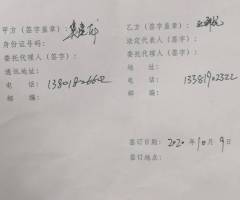 甲方（签字盖章）：
身份证号码：
委托代理人（签字）：
通讯地址：
电 话：
邮 编：
乙方（签字盖章）：
法定代表人（签字）：
委托代理人（签字）：
地 址：
电 话：
邮 编：
签订日期：2020年10月9日
签订地点：